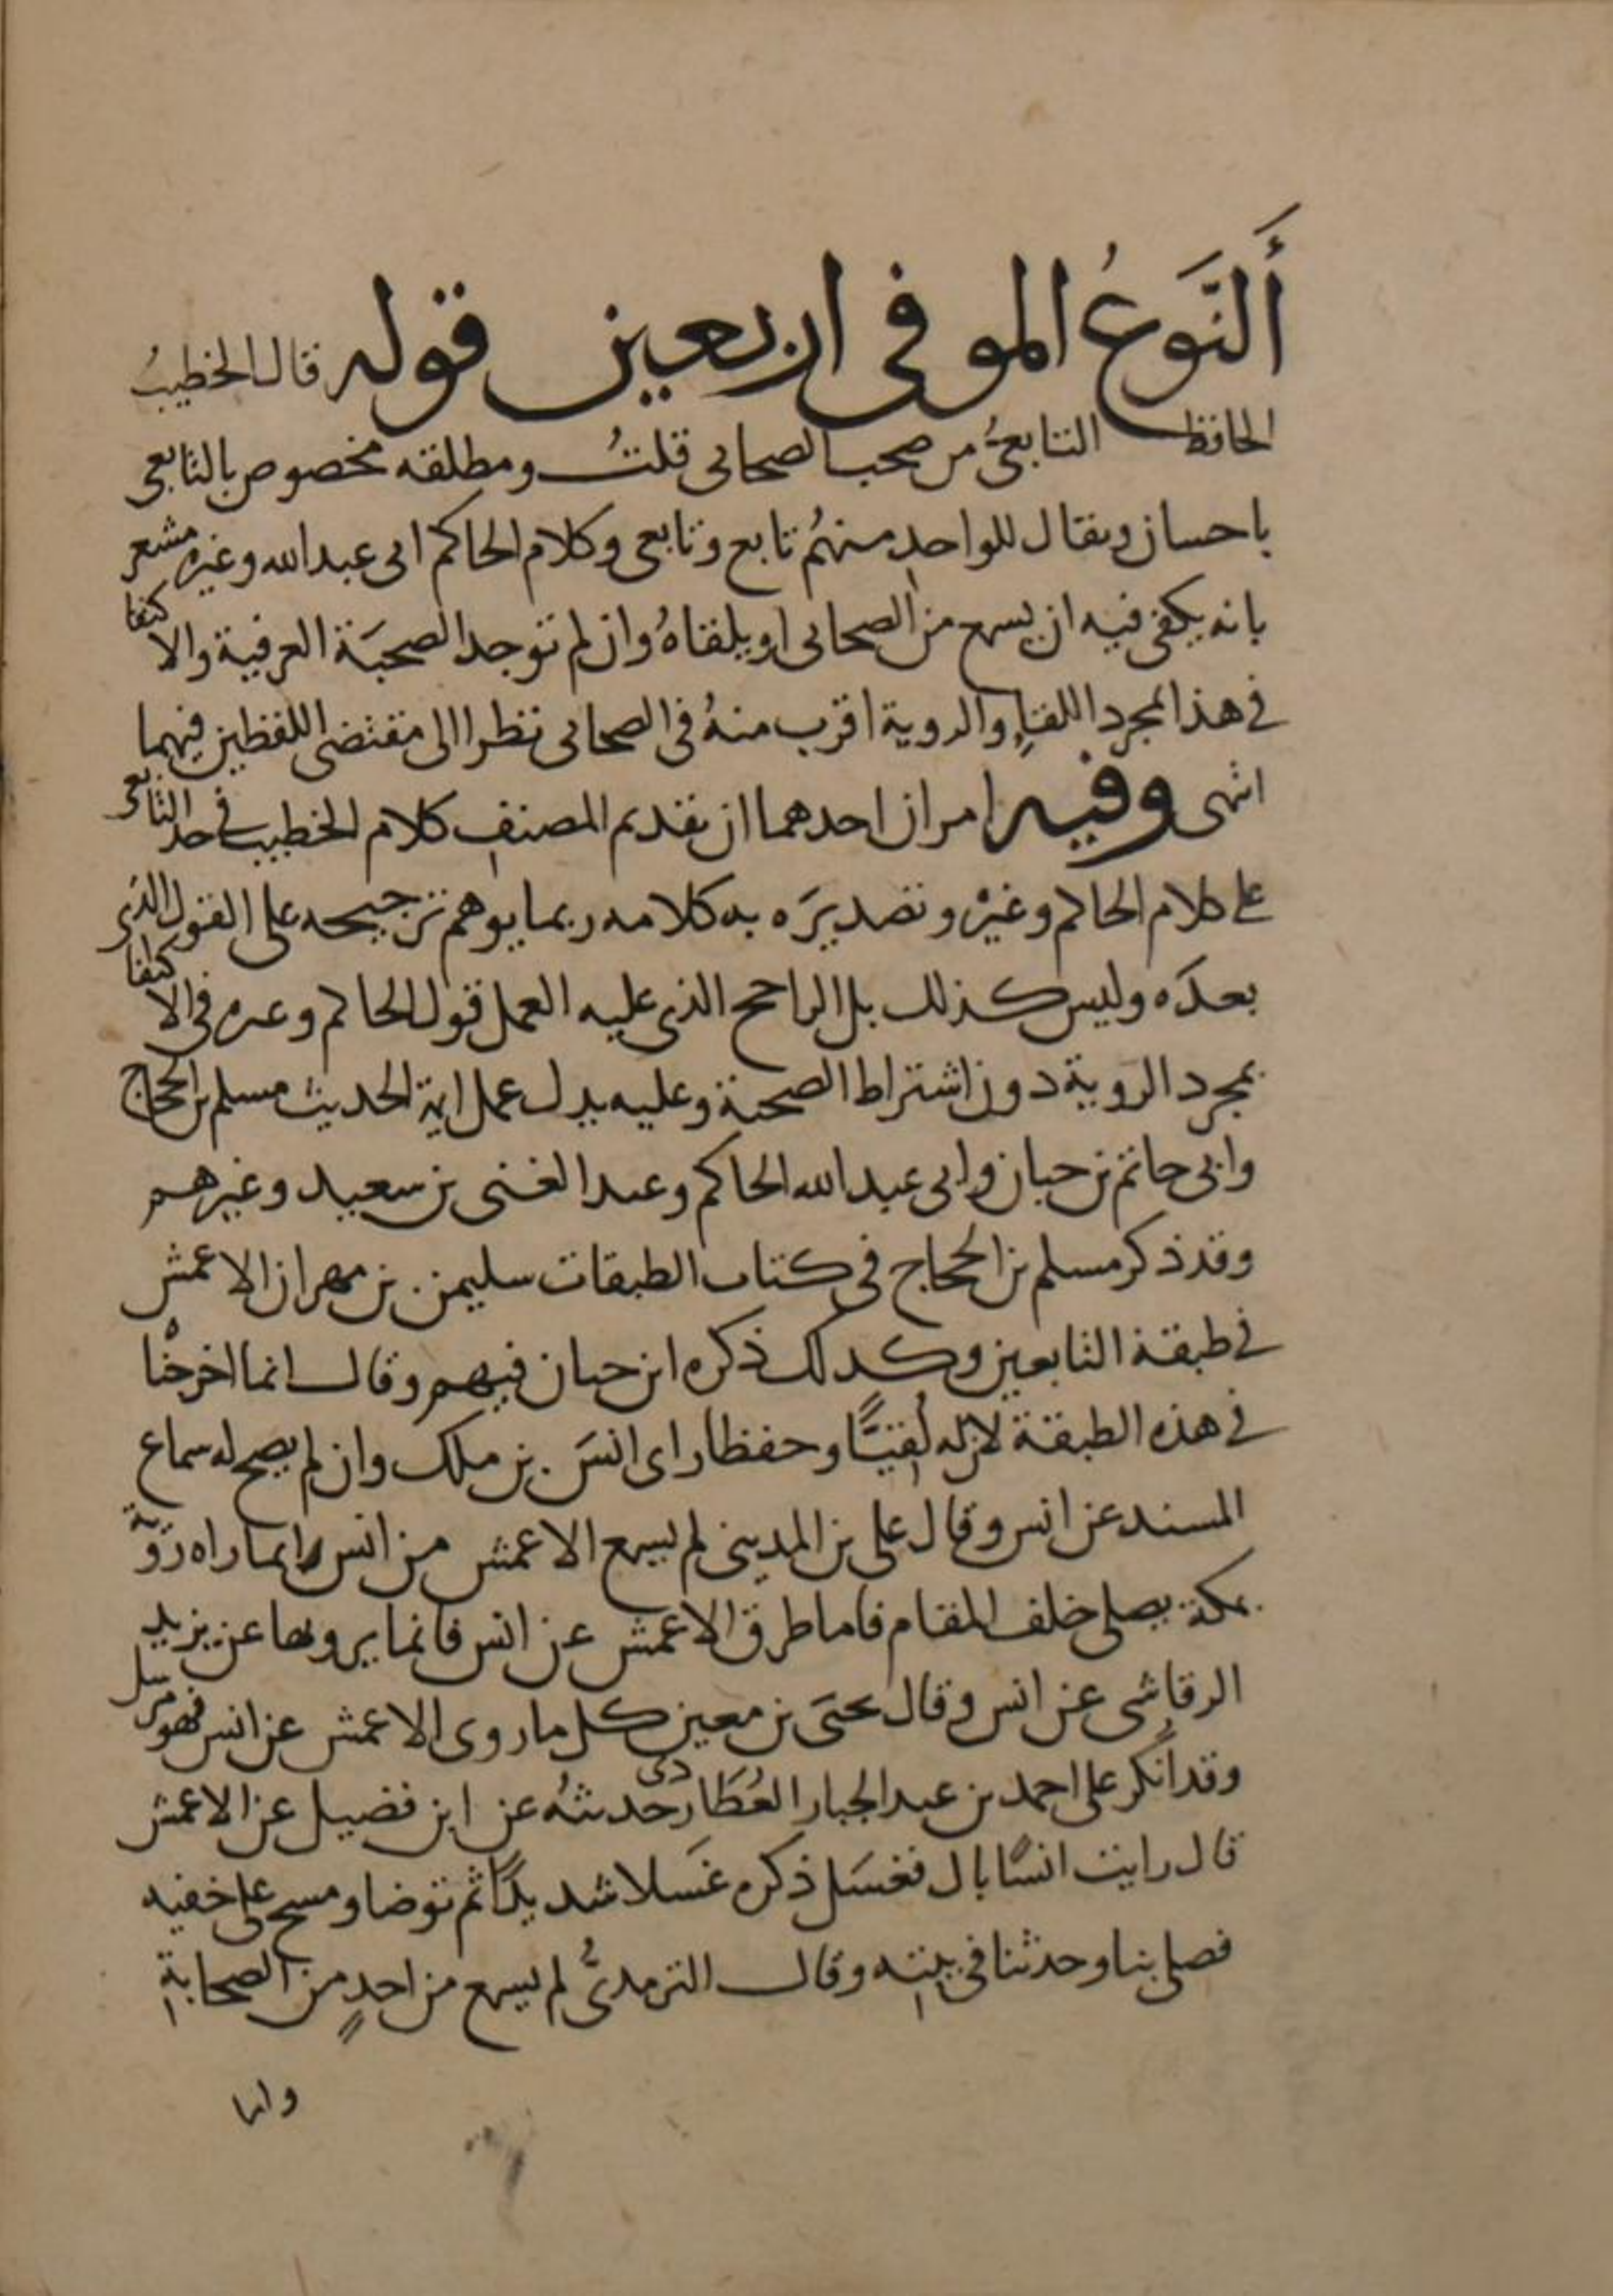 أَلنَّوَعُ الموفى اربعين قوله قال الخطيبُ
الحافظ التابعىُّ من صحب الصحابى قلتُ ومطلقه مخصوص بالتابعى
باحسان ويقال للواحدِ منهُم تابع وتابعى وكلام الحاكم ابى عبدالله وغيره مشعر
بانه يكفى فيه ان يسمع من الصحابى او يلقاهُ وان لم توجد الصحبَة العرفية والاكتفا
فى هذا بمجرد اللقاءِ والروية اقرب منهُ فى الصحابى نظرا الى مقتضى اللفظين فيهما
انتهى وفيه امران احدهما ان تقديم المصنفِ كلام الخطيب فى حد التابعى
على كلام الحاكم وغيره وتصديرَه به كلامه ربما يوهم ترجيحه على القول الذى
بعدَه وليس كذلك بل الراجح الذى عليه العمل قول الحاكم وغيره فى الاكتفا
بمجرد الروية دون اشتراط الصحبة وعليه يدل عمل ايمة الحديث مسلم بن الحجاج
وابى حاتم بن حبان وابى عبدالله الحاكم وعبد الغنى بن سعيد وغيرهم
وقد ذكر مسلم بن الحجاج فى كتاب الطبقات سليمن بن مهران الاعمش
فى طبقة التابعين وكذلك ذكره ابن حبان فيهم وقال انما اخرجناه
فى هذه الطبقة لان له لُقيًّا وحفظا راى انسَ بن ملك وان لم يصح له سماع
المسند عن انس وقال على بن المدينى لم يسمع الاعمش من انس انما راه رؤية
بمكة يصلى خلف المقام فاما طرق الاعمش عن انس فانما يرويها عن يزيد
الرقاشى عن انس وقال يحيَى بن معين كل ما روى الاعمش عن انس فهو مرسل
وقد أنكر على احمد بن عبد الجبار العُطَاردى حديثهُ عن ابن فضيل عن الاعمش
قال رايت انسًا بال فغسَل ذكره غَسلا شديدًا ثم توضا ومسح على خفيه
فصلى بنا وحدثنا فى بيته وقال الترمذىُّ لم يسمع من احدٍ من الصحابةِ
وانما